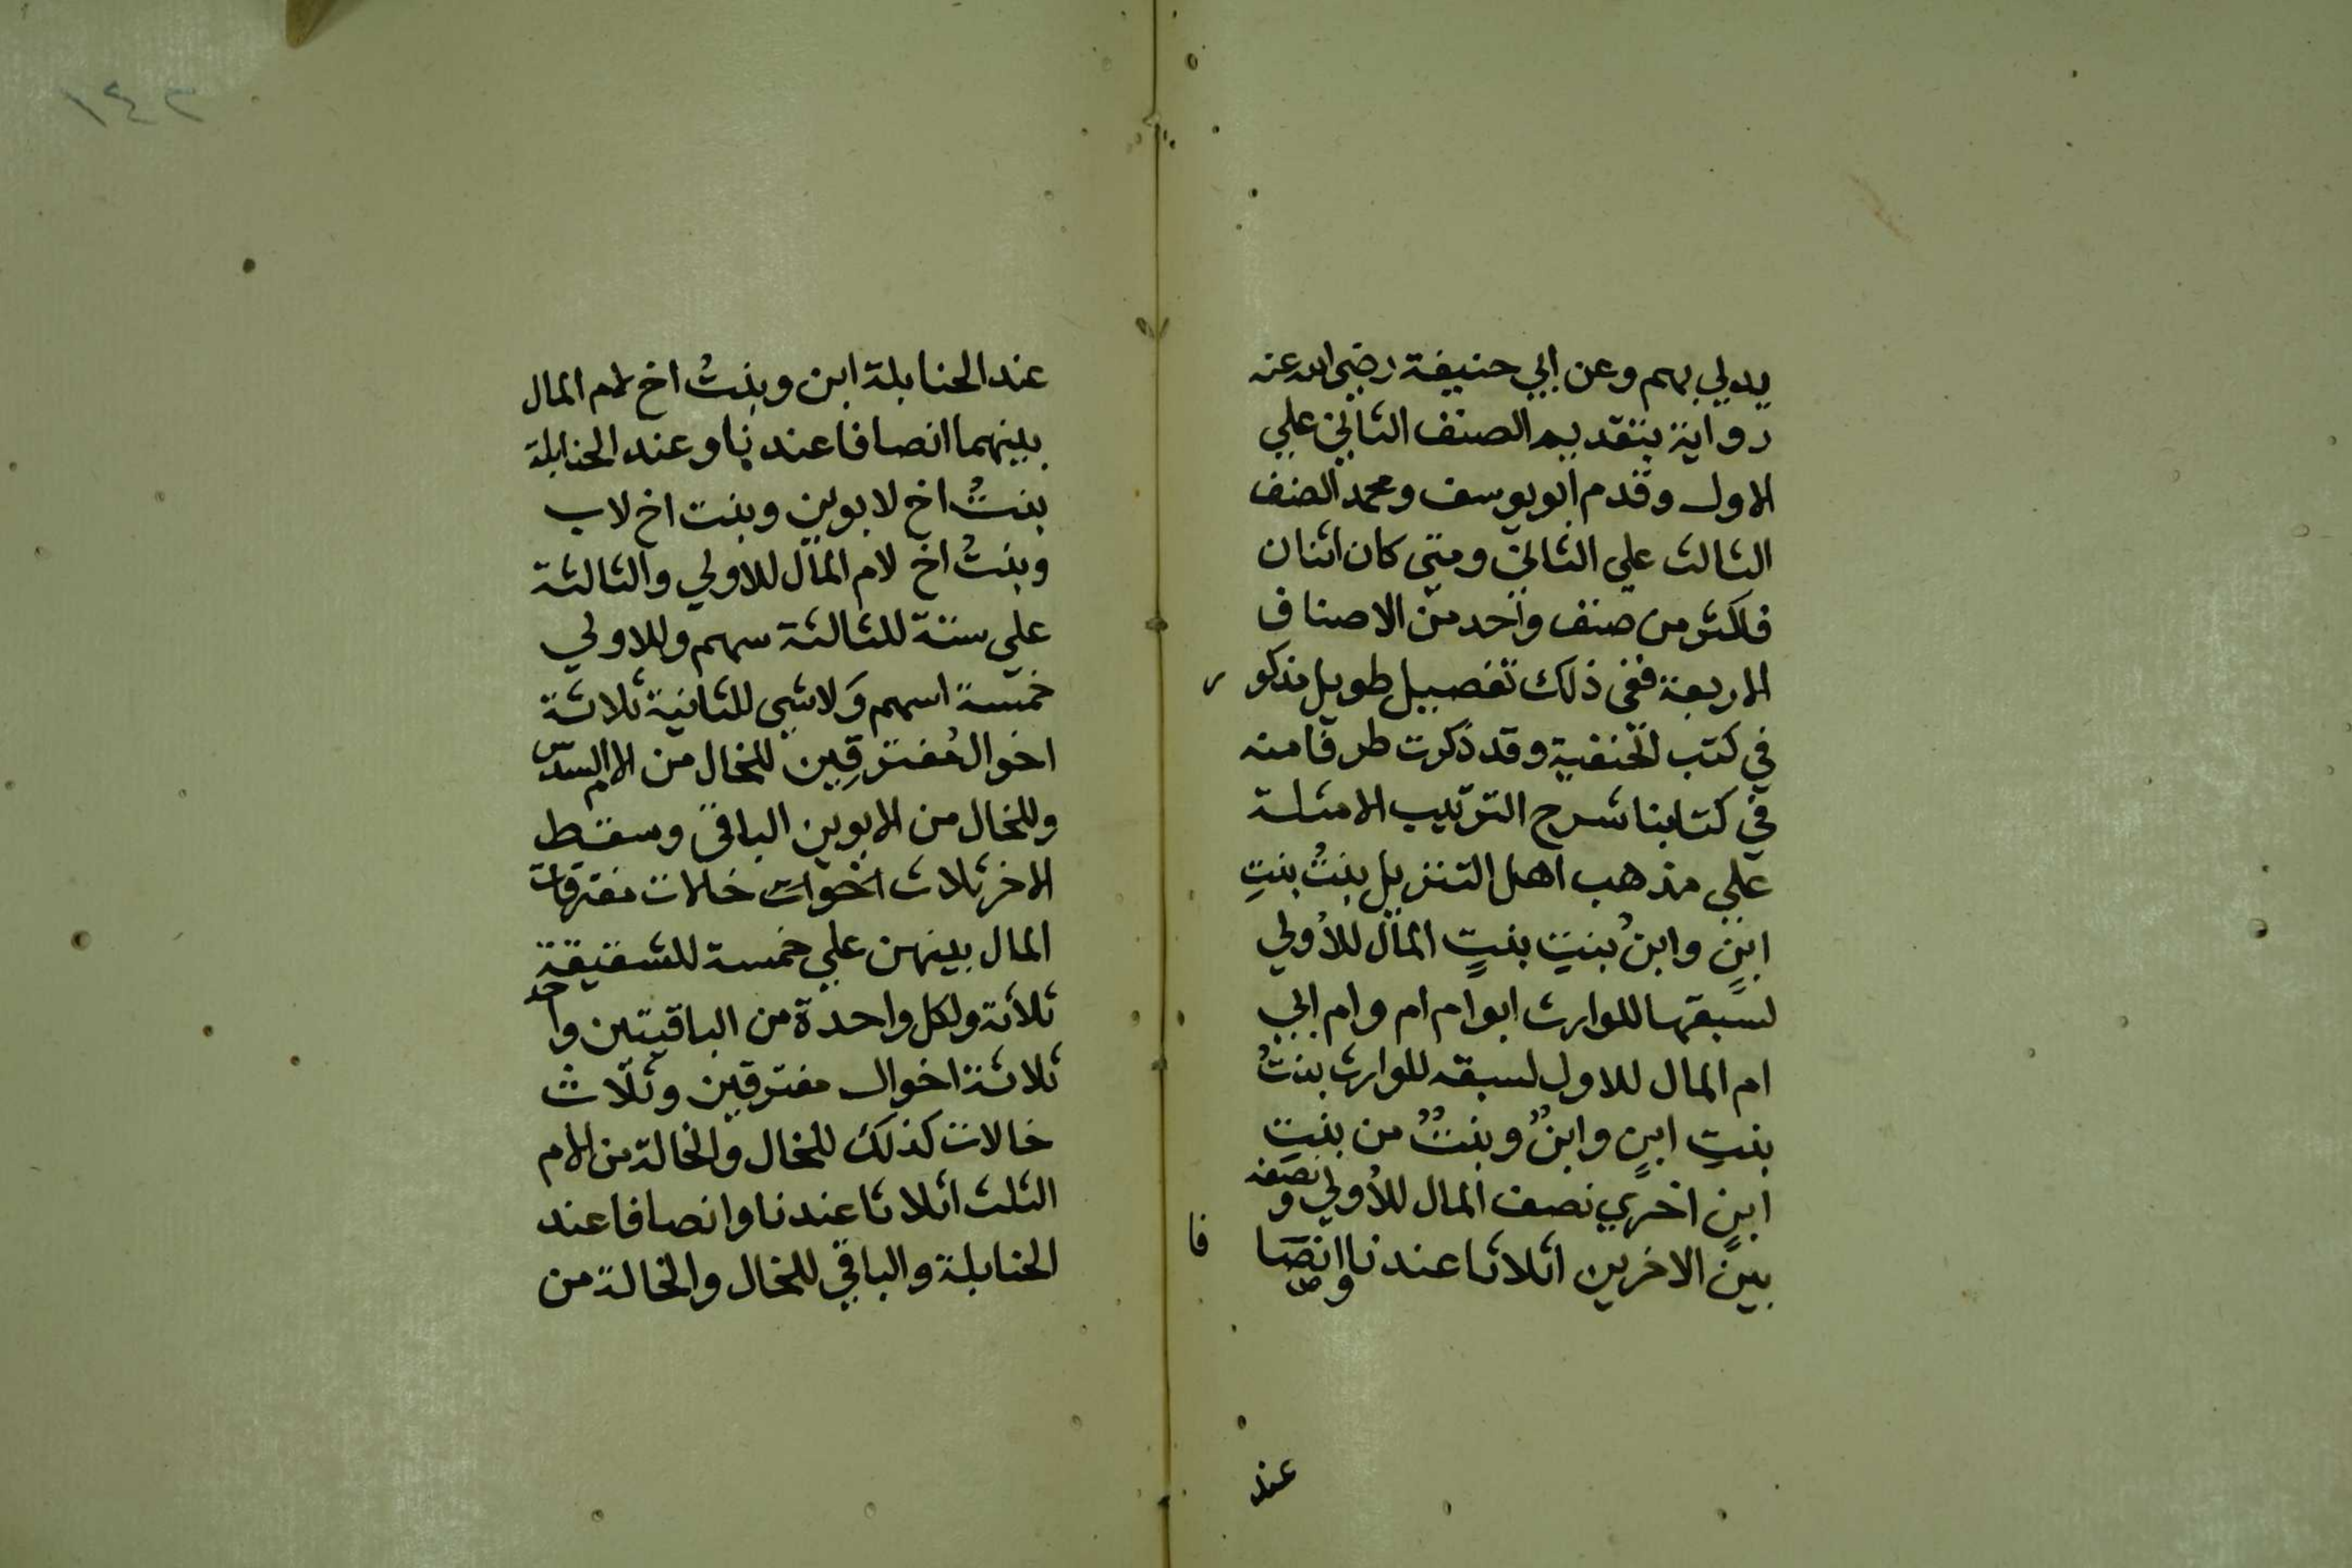 يدلي بهم وعن ابي حنيفة رضي الله عنه
رواية بتقديم الصنف الثاني علي
الاول وقدم ابو يوسف ومحمد الصنف
الثالث علي الثاني ومتي كان اثنان
فاكثر من صنف واحد من الاصناف
الاربعة ففي ذلك تفصيل طويل مذكور
في كتب الحنفية وقد ذكرت طرفا منه
في كتابنا شرح الترتيب الامثلة
علي مذهب اهل التنزيل بنتُ بنتِ
ابنٍ وابنُ بنتِ بنتٍ المال للأولي
لسبقها للوارث ابو ام ام وام ابي
ام المال للاول لسبقه للوارث بنتُ
بنتِ ابنٍ وابنٌ وبنتٌ من بنتِ
ابنٍ اخري نصف المال للأولي ونصفه
بين الاخرين اثلاثا عندنا وانصافا
عند
١٤٢
عند الحنابلة ابن وبنتُ اخ لام المال
بينهما انصافا عندنا وعند الحنابلة
بنتُ اخ لابوين وبنت اخ لاب
وبنتُ اخ لام المال للاولي والثالثة
علي ستة للثالثة سهم وللاولي
خمسة اسهم وَلا شي للثانية ثلاثة
اخوال مُفترقِين للخال من الام السدس
وللخال من الابوين الباقي وسقط
الاخر ثلاث اخوات خالات مفترقات
المال بينهن علي خمسة للشقيقة
ثلاثة ولكل واحدة من الباقيتين واحد
ثلاثة اخوال مفترقين وثلاث
خالات كذلك للخال والخالة من الام
الثلث اثلاثا عندنا وانصافا عند
الحنابلة والباقي للخال والخالة من